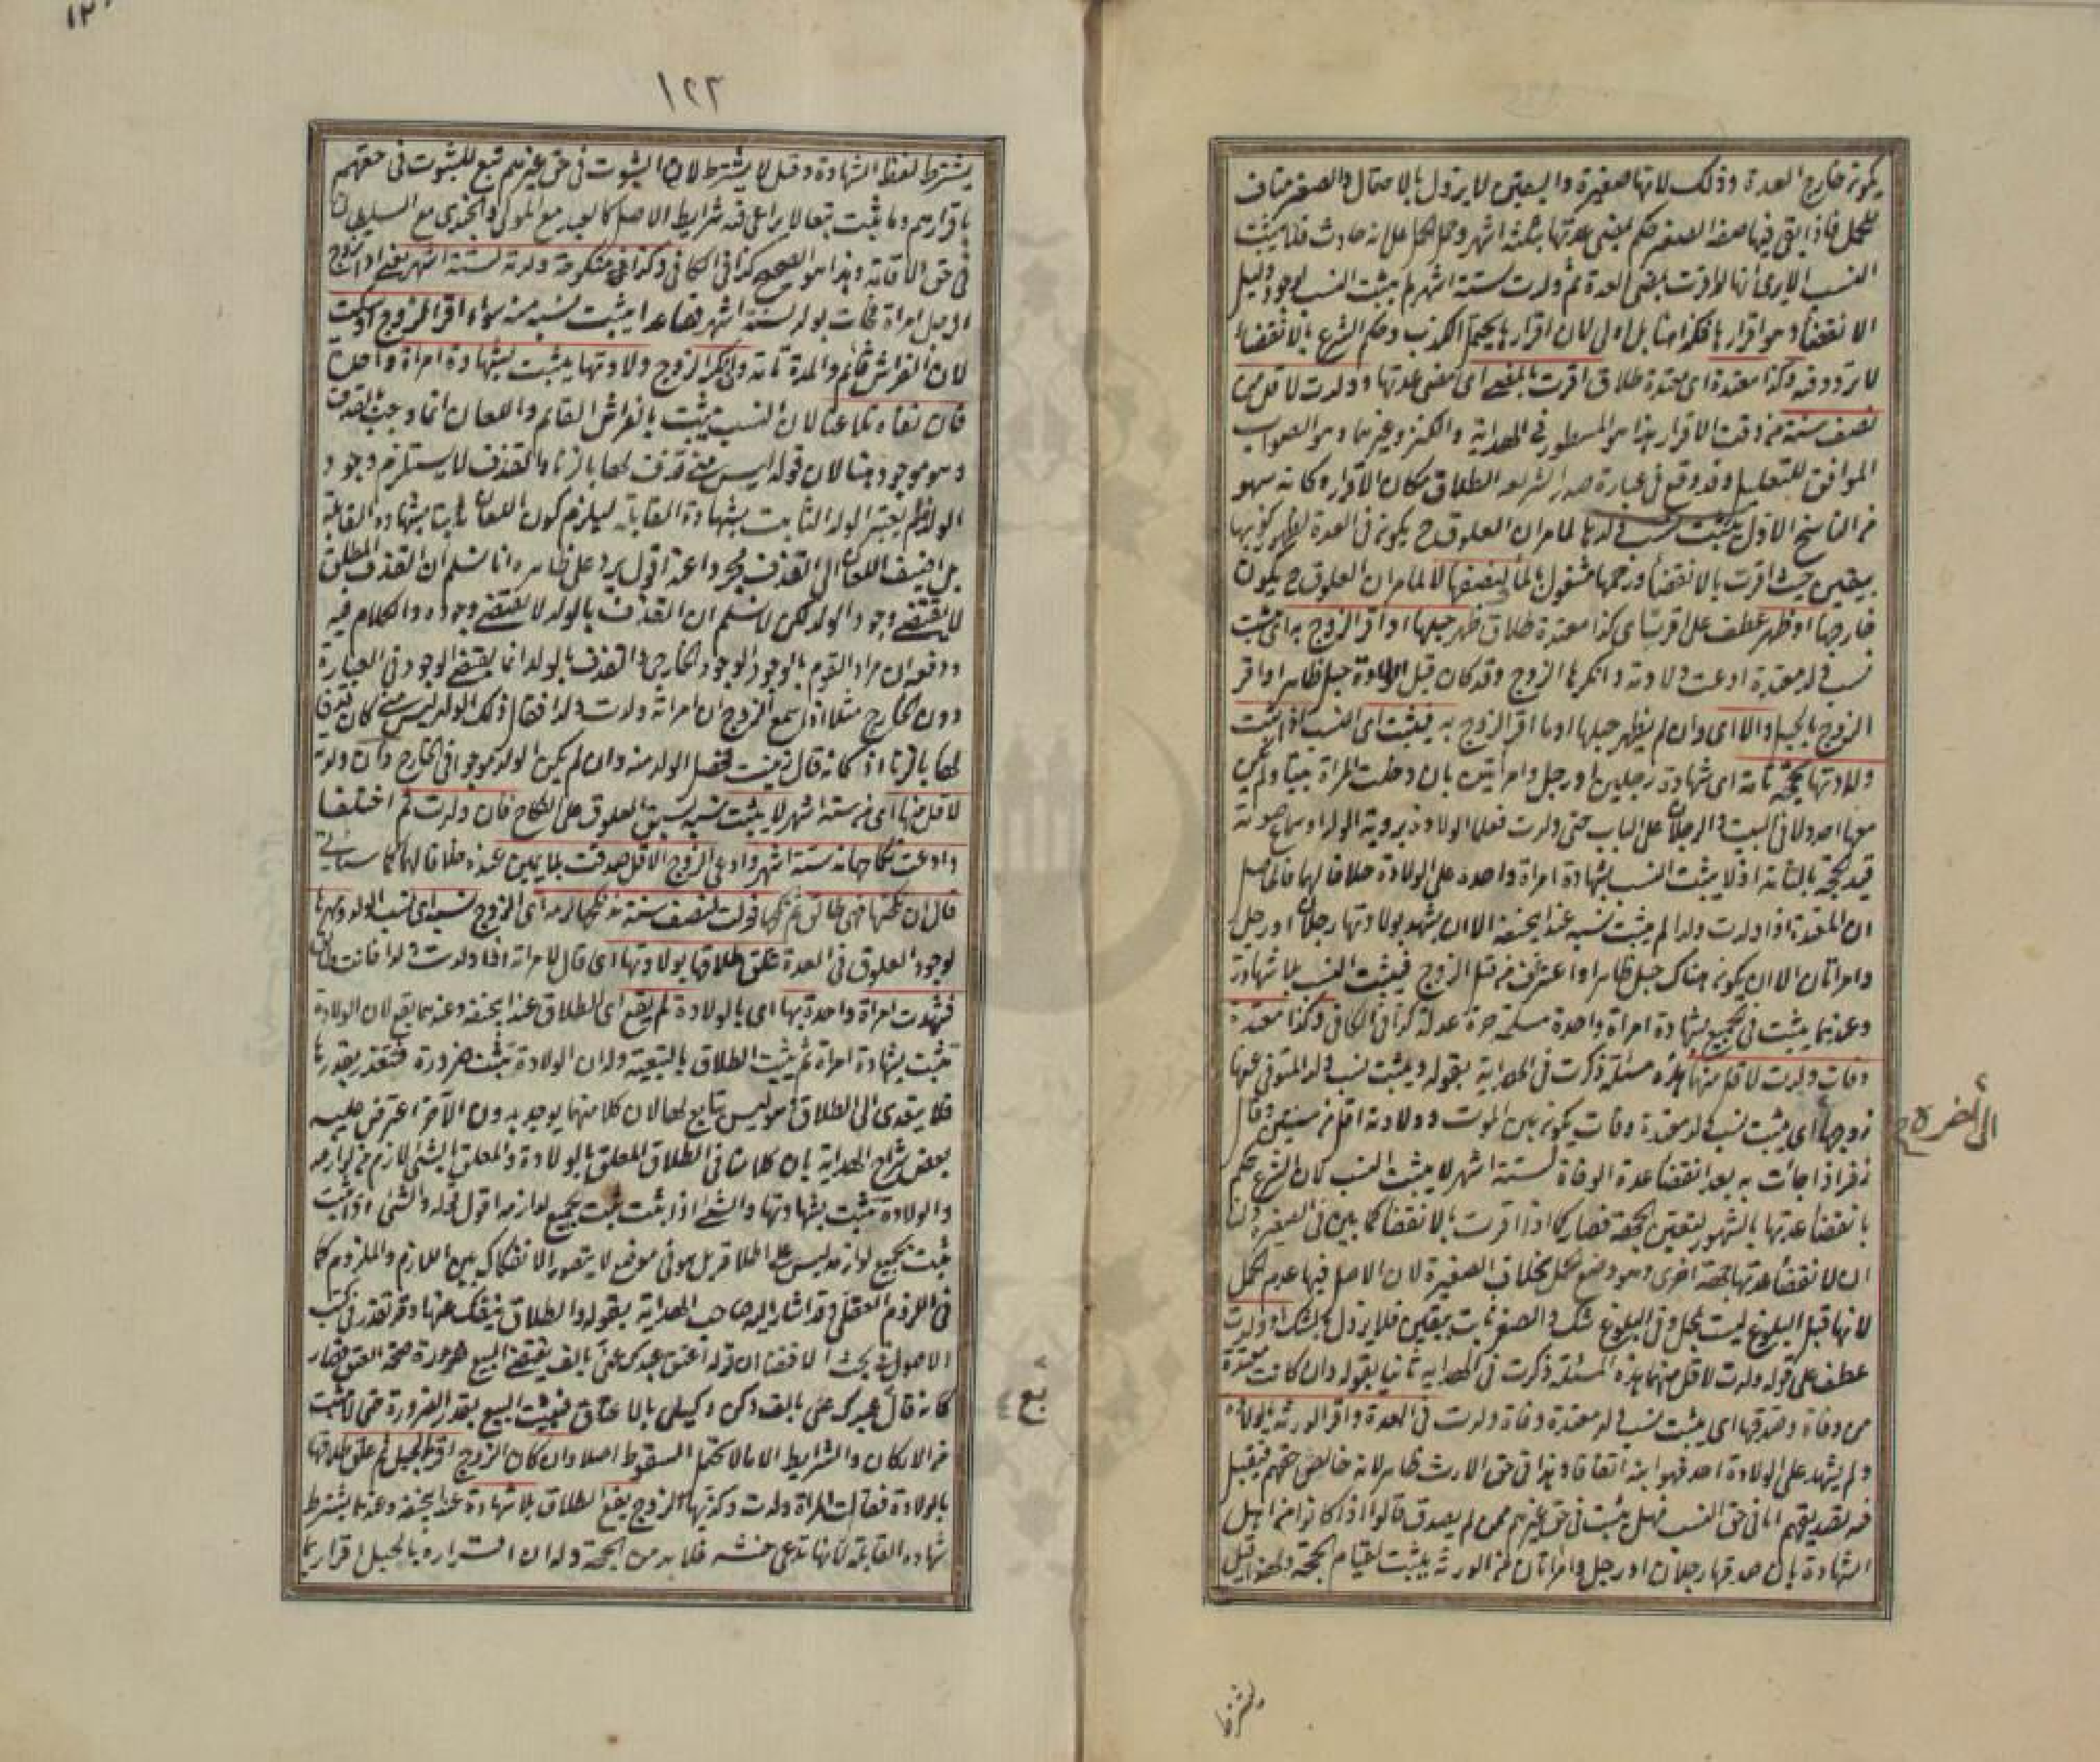 يكون خارج العدة وذلك لانها صغيرة واليقين لا يزول بالاحتمال والصغر مناف
للحمل فاذا بقي فيها صفة الصغر حكم بمضي عدتها بثلثة اشهر وحمل الحمل على انه حادث فلا يثبت
النسب الا يرى انها لو اقرت بمضي العدة ثم ولدت لستة اشهر لم يثبت النسب لوجود دليل
الانقضاء وهو اقرارها فكذا هنا بل اولى لان اقرارها يحتمل الكذب وحكم الشرع بالانقضاء
لا تردد فيه وكذا معتدة اى معتدة طلاق اقرت بالمضي اى بمضي عدتها وولدت لاقل من
نصف سنة من وقت الاقرار هذا هو المسطور في الهداية والكنز وغيرهما وهو الصواب
الموافق للتعليل وقد وقع في عبارة صدر الشريعة الطلاق مكان الاقرار وكانه سهو
من الناسخ الاول يثبت نسب ولدها لما مر ان العلوق ح يكون في العدة لظهور كذبها
بيقين حيث اقرت بالانقضاء ورحمها مشغول بالماء لنصفها لا لما مر ان العلوق ح يكون
خارجها او ظهر عطف على اقرت اى كذا معتدة طلاق ظهر حبلها او اقر الزوج به اى يثبت
نسب ولد معتدة ادعت ولادته وانكرها الزوج وقد كان قبل الولادة حبل ظاهر او اقر
الزوج بالحبل والا اى وان لم يظهر حبلها او ما اقر الزوج به فيثبت اى النسب اذا ثبت
ولادتها بحجة تامة اى شهادة رجلين او رجل وامراتين بان دخلت المراة بيتا ولم يكن
معها احد ولا في البيت والرجلان على الباب حتى ولدت فعلما الولادة برؤية الولد او سماع صوته
قيد الحجة بالتامة اذ لا يثبت النسب بشهادة امراة واحدة على الولادة خلافا لهما فالحاصل
ان المعتدة اذا ولدت ولدا لم يثبت نسبه عند ابي حنيفة الا ان يشهد بولادتها رجلان او رجل
وامراتان الا ان يكون هناك حبل ظاهر او اعتراف من قبل الزوج فيثبت النسب بلا شهادة
وعندهما يثبت في الجميع بشهادة امراة واحدة مسلمة حرة عدلة كذا في الكافي وكذا معتدة
وفات ولدت لاقل منهما هذه مسئلة ذكرت في الهداية بقوله ويثبت نسب ولد المتوفى عنها
زوجها اى يثبت نسب ولد معتدة وفات يكون بين الموت وولادته اقل من سنتين قال
زفر اذا جاءت به بعد انقضاء عدة الوفاة لستة اشهر لا يثبت النسب لان الشرع حكم
بانقضاء عدتها بالشهور لتعين الجهة فصار كما اذا اقرت بالانقضاء كما بين في الصغيرة ولنا
ان لانقضاء عدتها جهة اخرى وهو وضع الحمل بخلاف الصغيرة لان الاصل فيها عدم الحمل
لانها قبل البلوغ ليست بمحل وفي البلوغ شك والصغر ثابت بيقين فلا يزول بالشك او ولدت
عطف على قوله ولدت لاقل منهما هذه المسئلة ذكرت في الهداية ثانيا بقوله وان كانت معتدة
من وفاة وصدقها اى يثبت نسب ولد معتدة وفاة ولدت في العدة واقر الورثة بالولادة
ولم يشهد على الولادة احد فهو ابنه اتفاقا وهذا في حق الارث ظاهر لانه خالص حقهم فيقبل
فيه تصديقهم اما في حق النسب فهل يثبت في حق غيرهم ممن لم يصدق قالوا اذا كانوا من اهل
الشهادة بان صدقها رجلان او رجل وامراتان من الورثة يثبت لقيام الحجة ولهذا قيل
الى آخره
١٢٣
يشترط لفظ الشهادة وقيل لا يشترط لان الثبوت في حق غيرهم تبع للثبوت في حقهم
باقرارهم وما يثبت تبعا لا يراعى فيه شرايط الاصل كالعبد مع المولى والجندي مع السلطان
في حق الاقامة وهذا هو الصحيح كذا في الكافي وكذا في منكوحة ولدته لستة اشهر يعني اذا تزوج
الرجل امراة فجاءت بولد لستة اشهر فصاعدا يثبت نسبه منه سواء اقر الزوج او سكت
لان الفراش قائم والمدة تامة وان انكر الزوج ولادتها يثبت بشهادة امراة واحدة
فان نفاه تلاعنا لان النسب يثبت بالفراش القائم واللعان انما وجب بالقذف
وهو موجود هنا لان قوله ليس مني قذف لها بالزنا والقذف لا يستلزم وجود
الولد فلم يعتبر الولد الثابت بشهادة القابلة ليلزم كون اللعان ثابتا بشهادة القابلة
بل اضيف اللعان الى القذف مجردا عنه اقول يرد على ظاهره انا نسلم ان القذف المطلق
لا يقتضي وجود الولد لكن لا نسلم ان القذف بالولد لا يقتضي وجوده والكلام فيه
ودفعه ان مراد القوم بالوجود الوجود الخارجي والقذف بالولد انما يقتضي الوجود في العبارة
دون الخارج مثلا اذا سمع الزوج ان امراته ولدت ولدا فقال ذلك الولد ليس مني كان قذفا
لها بالزنا اذ كانه قال زنيت فحصل الولد منه وان لم يكن الولد موجودا في الخارج وان ولدته
لاقل منها اى من ستة اشهر لا يثبت نسبه لسبق العلوق على النكاح فان ولدت ثم اختلفا
وادعت نكاحها منذ ستة اشهر وادعى الزوج الاقل صدقت بلا يمين عنده خلافا لهما كما سياتي
قال ان نكحتها فهي طالق ثم نكحها فولدت لنصف سنة منذ نكحها لزمه اى الزوج نسبه اى نسب الولد ومهرها
لوجود العلوق في العدة علق طلاقها بولادتها اى قال لامراته اذا ولدت ولدا فانت طالق
فشهدت امراة واحدة بها اى بالولادة لم يقع اى الطلاق عند ابي حنيفة وعندهما يقع لان الولادة
تثبت بشهادة امراة ثم يثبت الطلاق بالتبعية وله ان الولادة تثبت ضرورة فتتقدر بقدرها
فلا يتعدى الى الطلاق وهو ليس بتابع لها لان كلا منهما يوجد بدون الآخر اعترض عليه
بعض شراح الهداية بان كلامنا في الطلاق المعلق بالولادة والمعلق بالشئ لازم من لوازمه
والولادة تثبت بشهادتها والشئ اذا ثبت ثبت بجميع لوازمه اقول قوله والشئ اذا ثبت
ثبت بجميع لوازمه ليس على اطلاقه بل هو في موضع لا يتصور الانفكاك بين اللازم والملزوم كما
في اللزوم العقلي وقد اشار اليه صاحب الهداية بقوله والطلاق ينفك عنها وقد تقرر في كتب
الاصول في بحث الاقتضاء ان قوله اعتق عبدك عني بالف يقتضي البيع ضرورة صحة العتق فصار
كانه قال بع عبدك عني بالف وكن وكيلي بالاعتاق فيثبت البيع بقدر الضرورة حتى لا يثبت
من الاركان والشرايط الا ما لا يحتمل السقوط اصلا وان كان الزوج اقر بالحبل ثم علق طلاقها
بالولادة فقالت المراة ولدت وكذبها الزوج يقع الطلاق بلا شهادة عند ابي حنيفة وعندهما يشترط
شهادة القابلة لانها تدعي حنثه فلا بد من الحجة وله ان اقراره بالحبل اقرار بما
بع